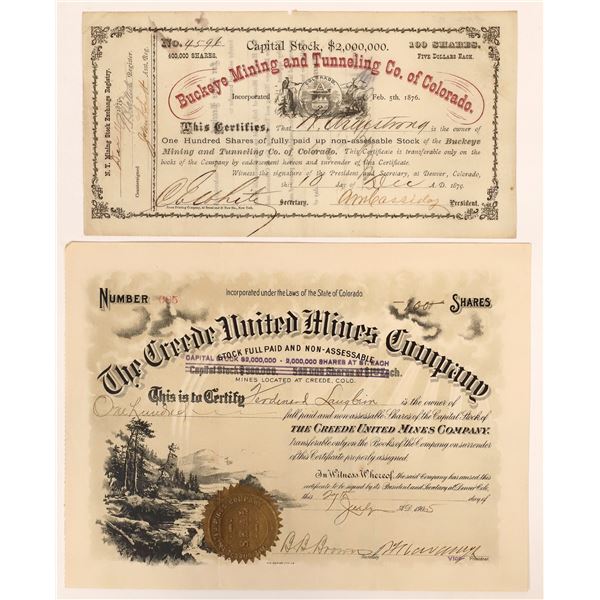 No. 4596
Capital Stock, $2,000,000.
100 SHARES.
400,000 SHARES.
FIVE DOLLARS EACH.
Buckeye Mining and Tunneling Co. of Colorado.
COLORADO
Incorporated Feb. 5th, 1876.
This Certifies, That Armstrong is the owner of
One Hundred Shares of fully paid up non-assessable Stock of the Buckeye
Mining and Tunneling Co. of Colorado. This Certificate is transferable only on the
books of the Company by endorsement hereon and surrender of this Certificate.
Witness the signature of the President and Secretary, at Denver, Colorado,
this 18 day of Dec A.D. 1879.
Secretary.
President.
N. Y. Mining Stock Exchange Registry.
Countersigned
NUMBER
Incorporated under the Laws of the State of Colorado.
100 SHARES
The Creede United Mines Company
STOCK FULL PAID AND NON-ASSESSABLE
CAPITAL STOCK $2,000,000 - 2,000,000 SHARES AT $1. EACH
Capital Stock $500,000. 500,000 Shares at $1 Each.
MINES LOCATED AT CREEDE, COLO.
This is to Certify Ferdinand is the owner of
One Hundred full paid and non-assessable Shares of the Capital Stock of
THE CREEDE UNITED MINES COMPANY.
transferable only on the Books of the Company on surrender
of this Certificate properly assigned.
In Witness Whereof, the said Company has caused this
certificate to be signed by its President and Secretary at Denver Colo.
this 27th day of
July
B. B. Brown
Secretary
Vice President.